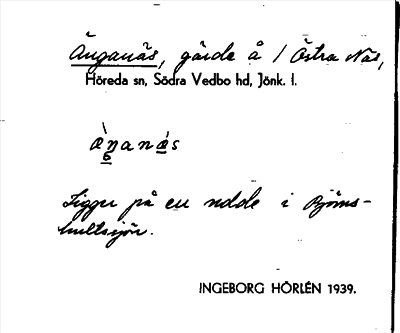 Änganäs, gärde å / Östra Näs,
Höreda sn, Södra Vedbo hd, Jönk. l.
Ligger på en udde i Björns-
hultsjön.
INGEBORG HÖRLÉN 1939.